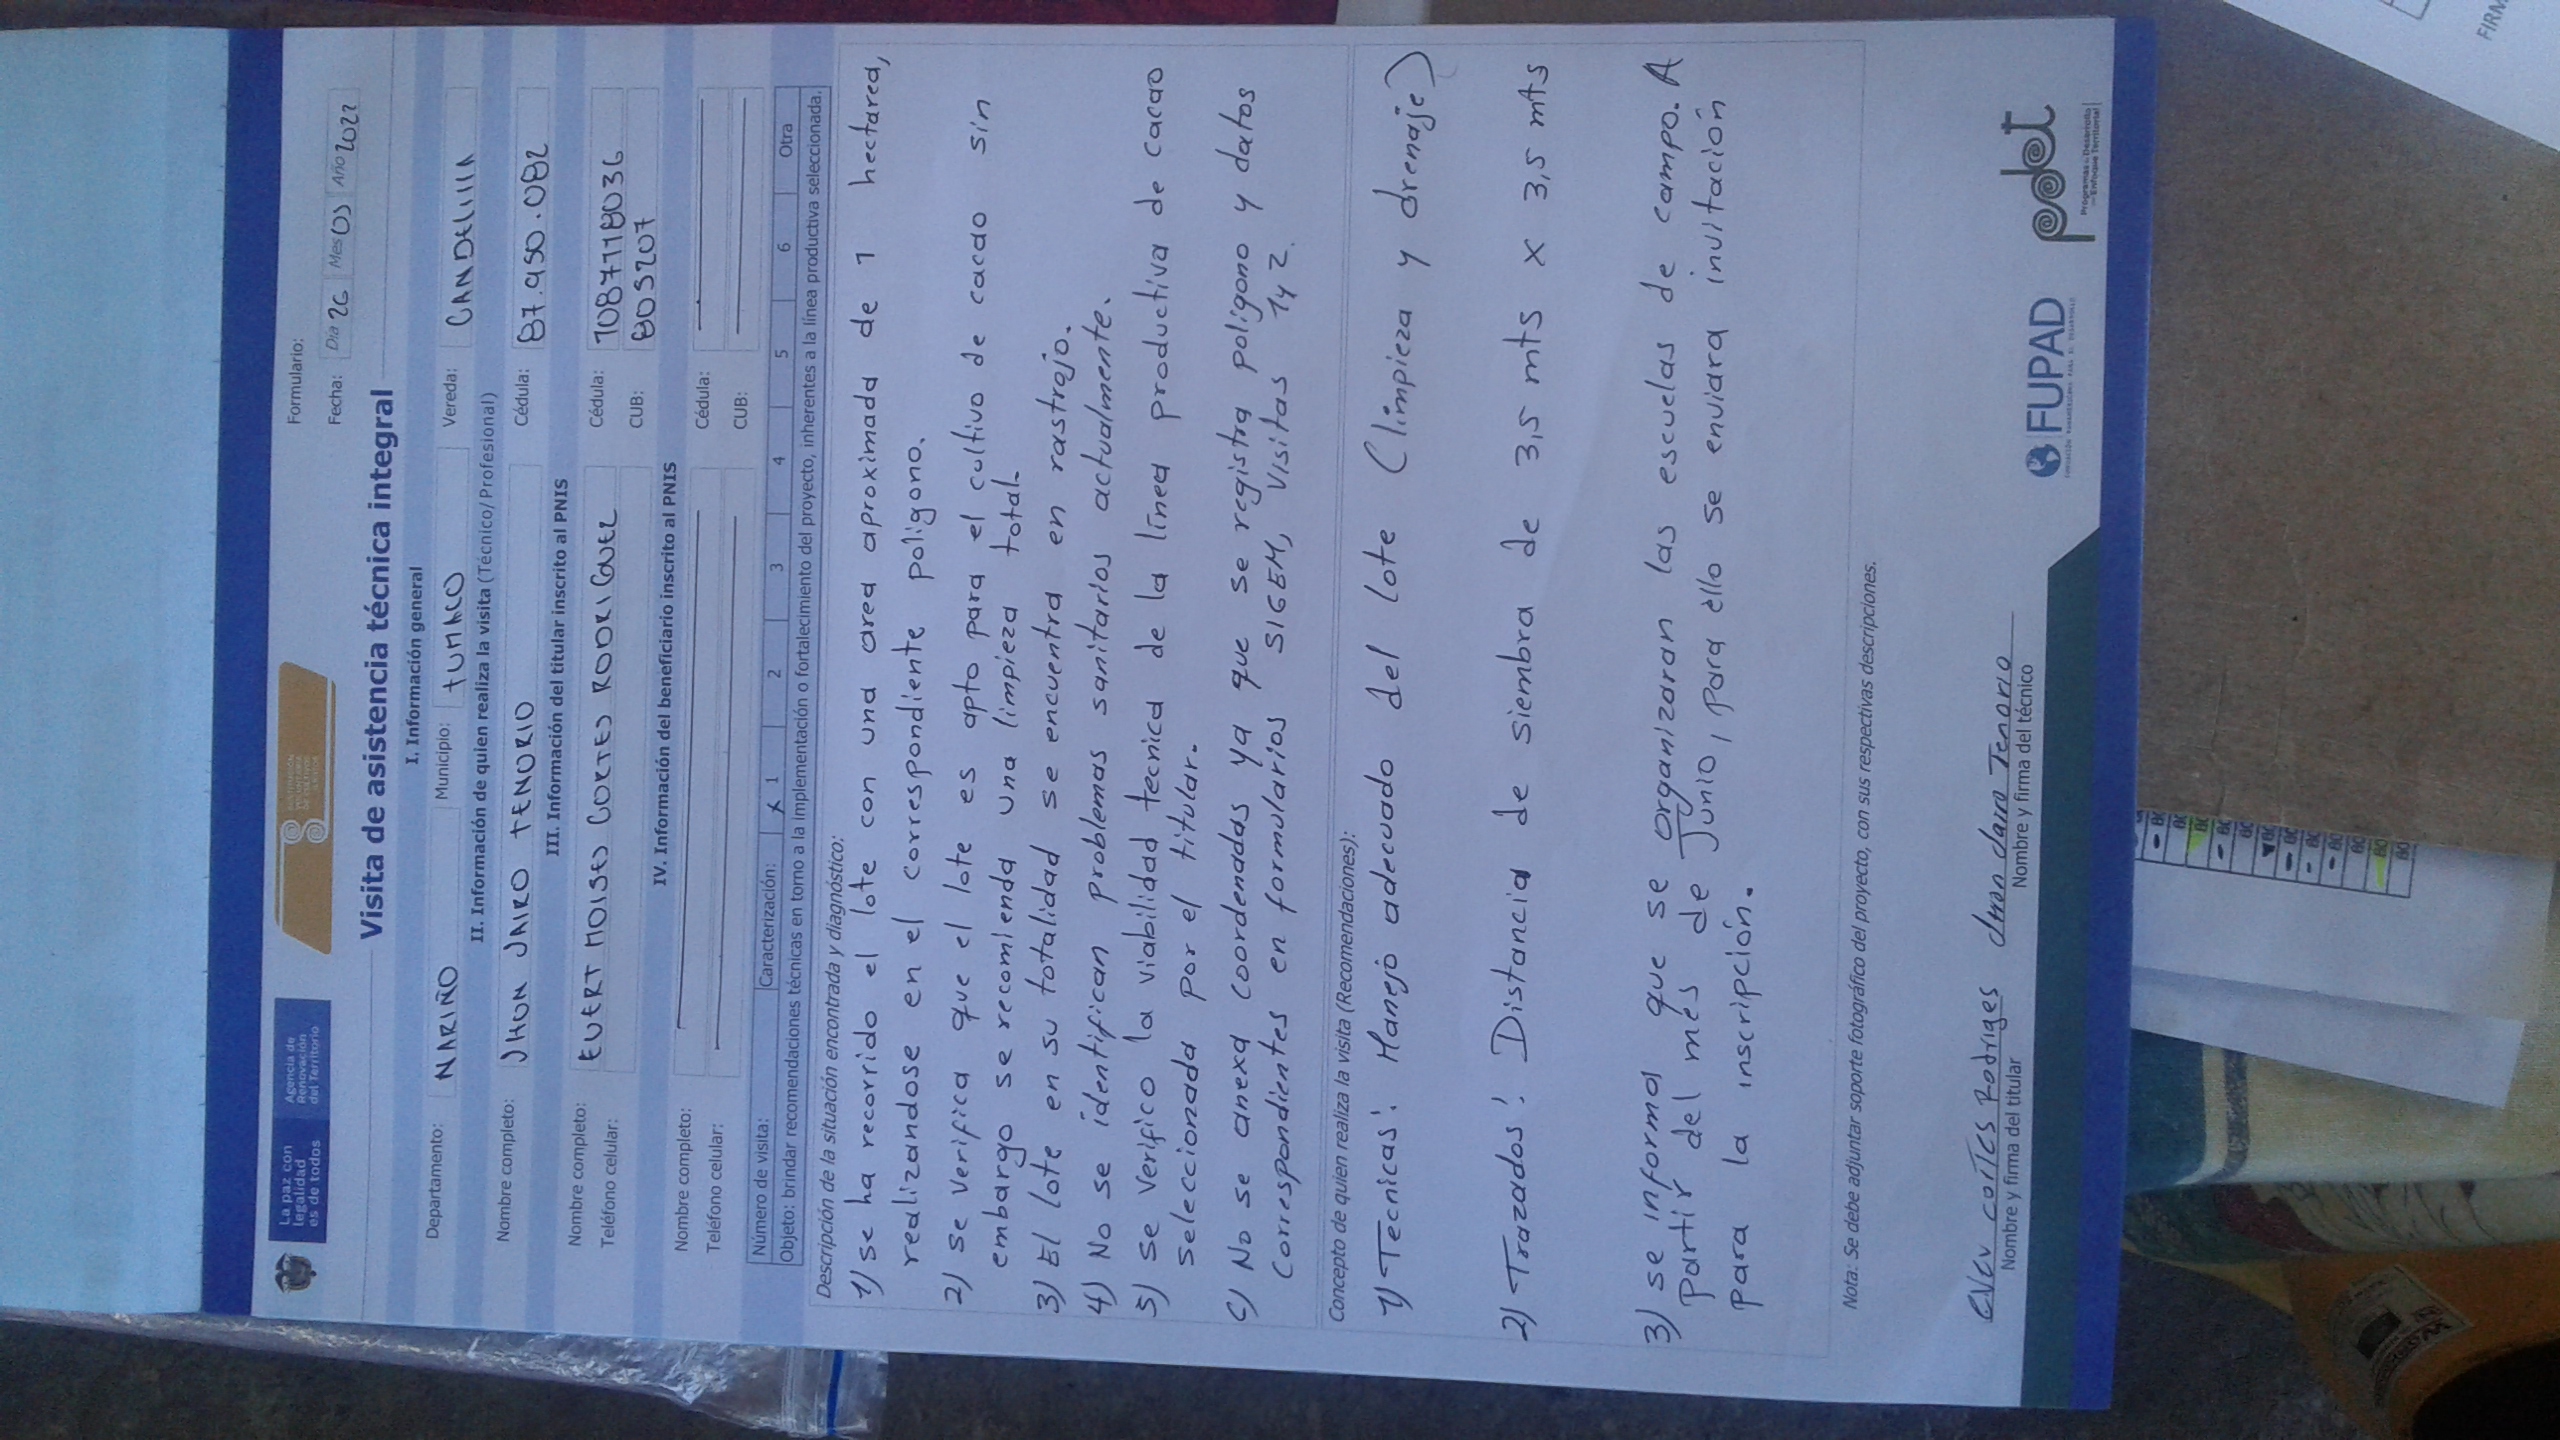 La paz con
legalidad
es de todos
Agencia de
Renovación
del Territorio
Formulario:
Fecha: Día 26 Mes 05 Año 2022
Visita de asistencia técnica integral
I. Información general
Departamento: NARIÑO Municipio: tUMACO Vereda: CANDElIllA
II. Información de quien realiza la visita (Técnico/Profesional)
Nombre completo: JHON JAIRO TENORIO Cédula: 87.950.082
III. Información del titular inscrito al PNIS
Nombre completo: EVERT MOISES CORTES RODRIGUEZ Cédula: 1087118036
Teléfono celular: CUB: 803207
IV. Información del beneficiario inscrito al PNIS
Nombre completo: Cédula:
Teléfono celular: CUB:
Número de visita: Caracterización: X 1 2 3 4 5 6 Otra
Objeto: brindar recomendaciones técnicas en torno a la implementación o fortalecimiento del proyecto, inherentes a la línea productiva seleccionada.
Descripción de la situación encontrada y diagnóstico:
1) se ha recorrido el lote con una area aproximada de 1 hectarea,
realizandose en el correspondiente poligono.
2) se verifica que el lote es apto para el cultivo de cacao sin
embargo se recomienda una limpieza total.
3) El lote en su totalidad se encuentra en rastrojo.
4) No se identifican problemas sanitarios actualmente.
5) se verifico la viabilidad tecnica de la línea productiva de cacao
seleccionada por el titular.
6) No se anexa coordenadas ya que se registra poligono y datos
correspondientes en formularios SIGEM, visitas 1y2.
Concepto de quien realiza la visita (Recomendaciones):
1) Tecnicas: Manejo adecuado del lote (limpieza y drenaje)
2) Trazados: Distancia de siembra de 3,5 mts x 3,5 mts
3) se informa que se organizaran las escuelas de campo. A
partir del mes de Junio, para ello se enviara invitación
para la inscripción.
Nota: Se debe adjuntar soporte fotográfico del proyecto, con sus respectivas descripciones.
EVEV coItes Rodriges Jhon Jairo Tenorio
Nombre y firma del titular Nombre y firma del técnico
FUPAD
pdet
Programas de Desarrollo
con Enfoque Territorial